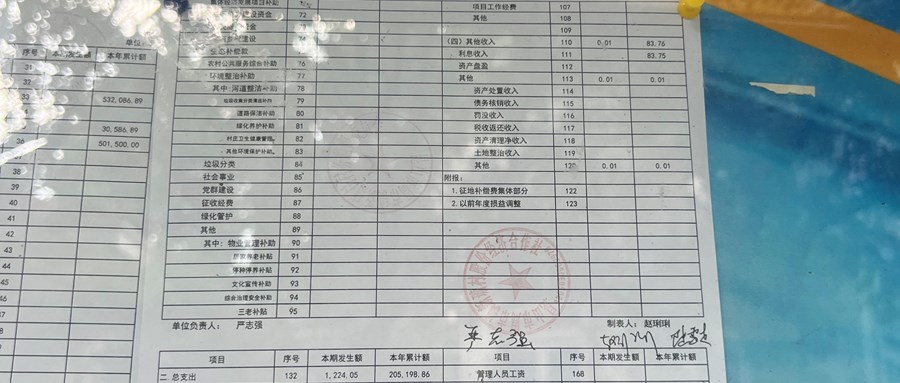 单位:
序号 本期发生额 本年累计额
31
32
33 532,086.89
30,586.89
36 501,500.00
38
39
40
41
42
43
44
45
46
47
48
72
生态补偿款
农村公共服务综合补助 76
环境整治补助 77
其中:河道整洁补助 78
79
道路保洁补助 80
绿化养护补助 81
村庄卫生健康管理 82
其他环境保护补助 83
垃圾分类 84
社会事业 85
党群建设 86
征收经费 87
绿化管护 88
其他 89
其中:物业管理补助 90
居家养老补贴 91
停种停养补贴 92
文化宣传补助 93
综合治理安全补助 94
三老补贴 95
项目工作经费 107
其他 108
109
(四)其他收入 110 0.01 83.76
利息收入 111 83.75
资产盘盈 112
其他 113 0.01 0.01
资产处置收入 114
债务核销收入 115
罚没收入 116
税收返还收入 117
资产清理净收入 118
土地整治收入 119
其他 120 0.01 0.01
附报:
1.征地补偿费集体部分 122
2.以前年度损益调整 123
单位负责人: 严志强
严志强
制表人: 赵琍琍
项目 序号 本期发生额 本年累计额 项目 序号 本期发生额 本年累计额
二.总支出 132 1,224.05 205,198.86 管理人员工资 168